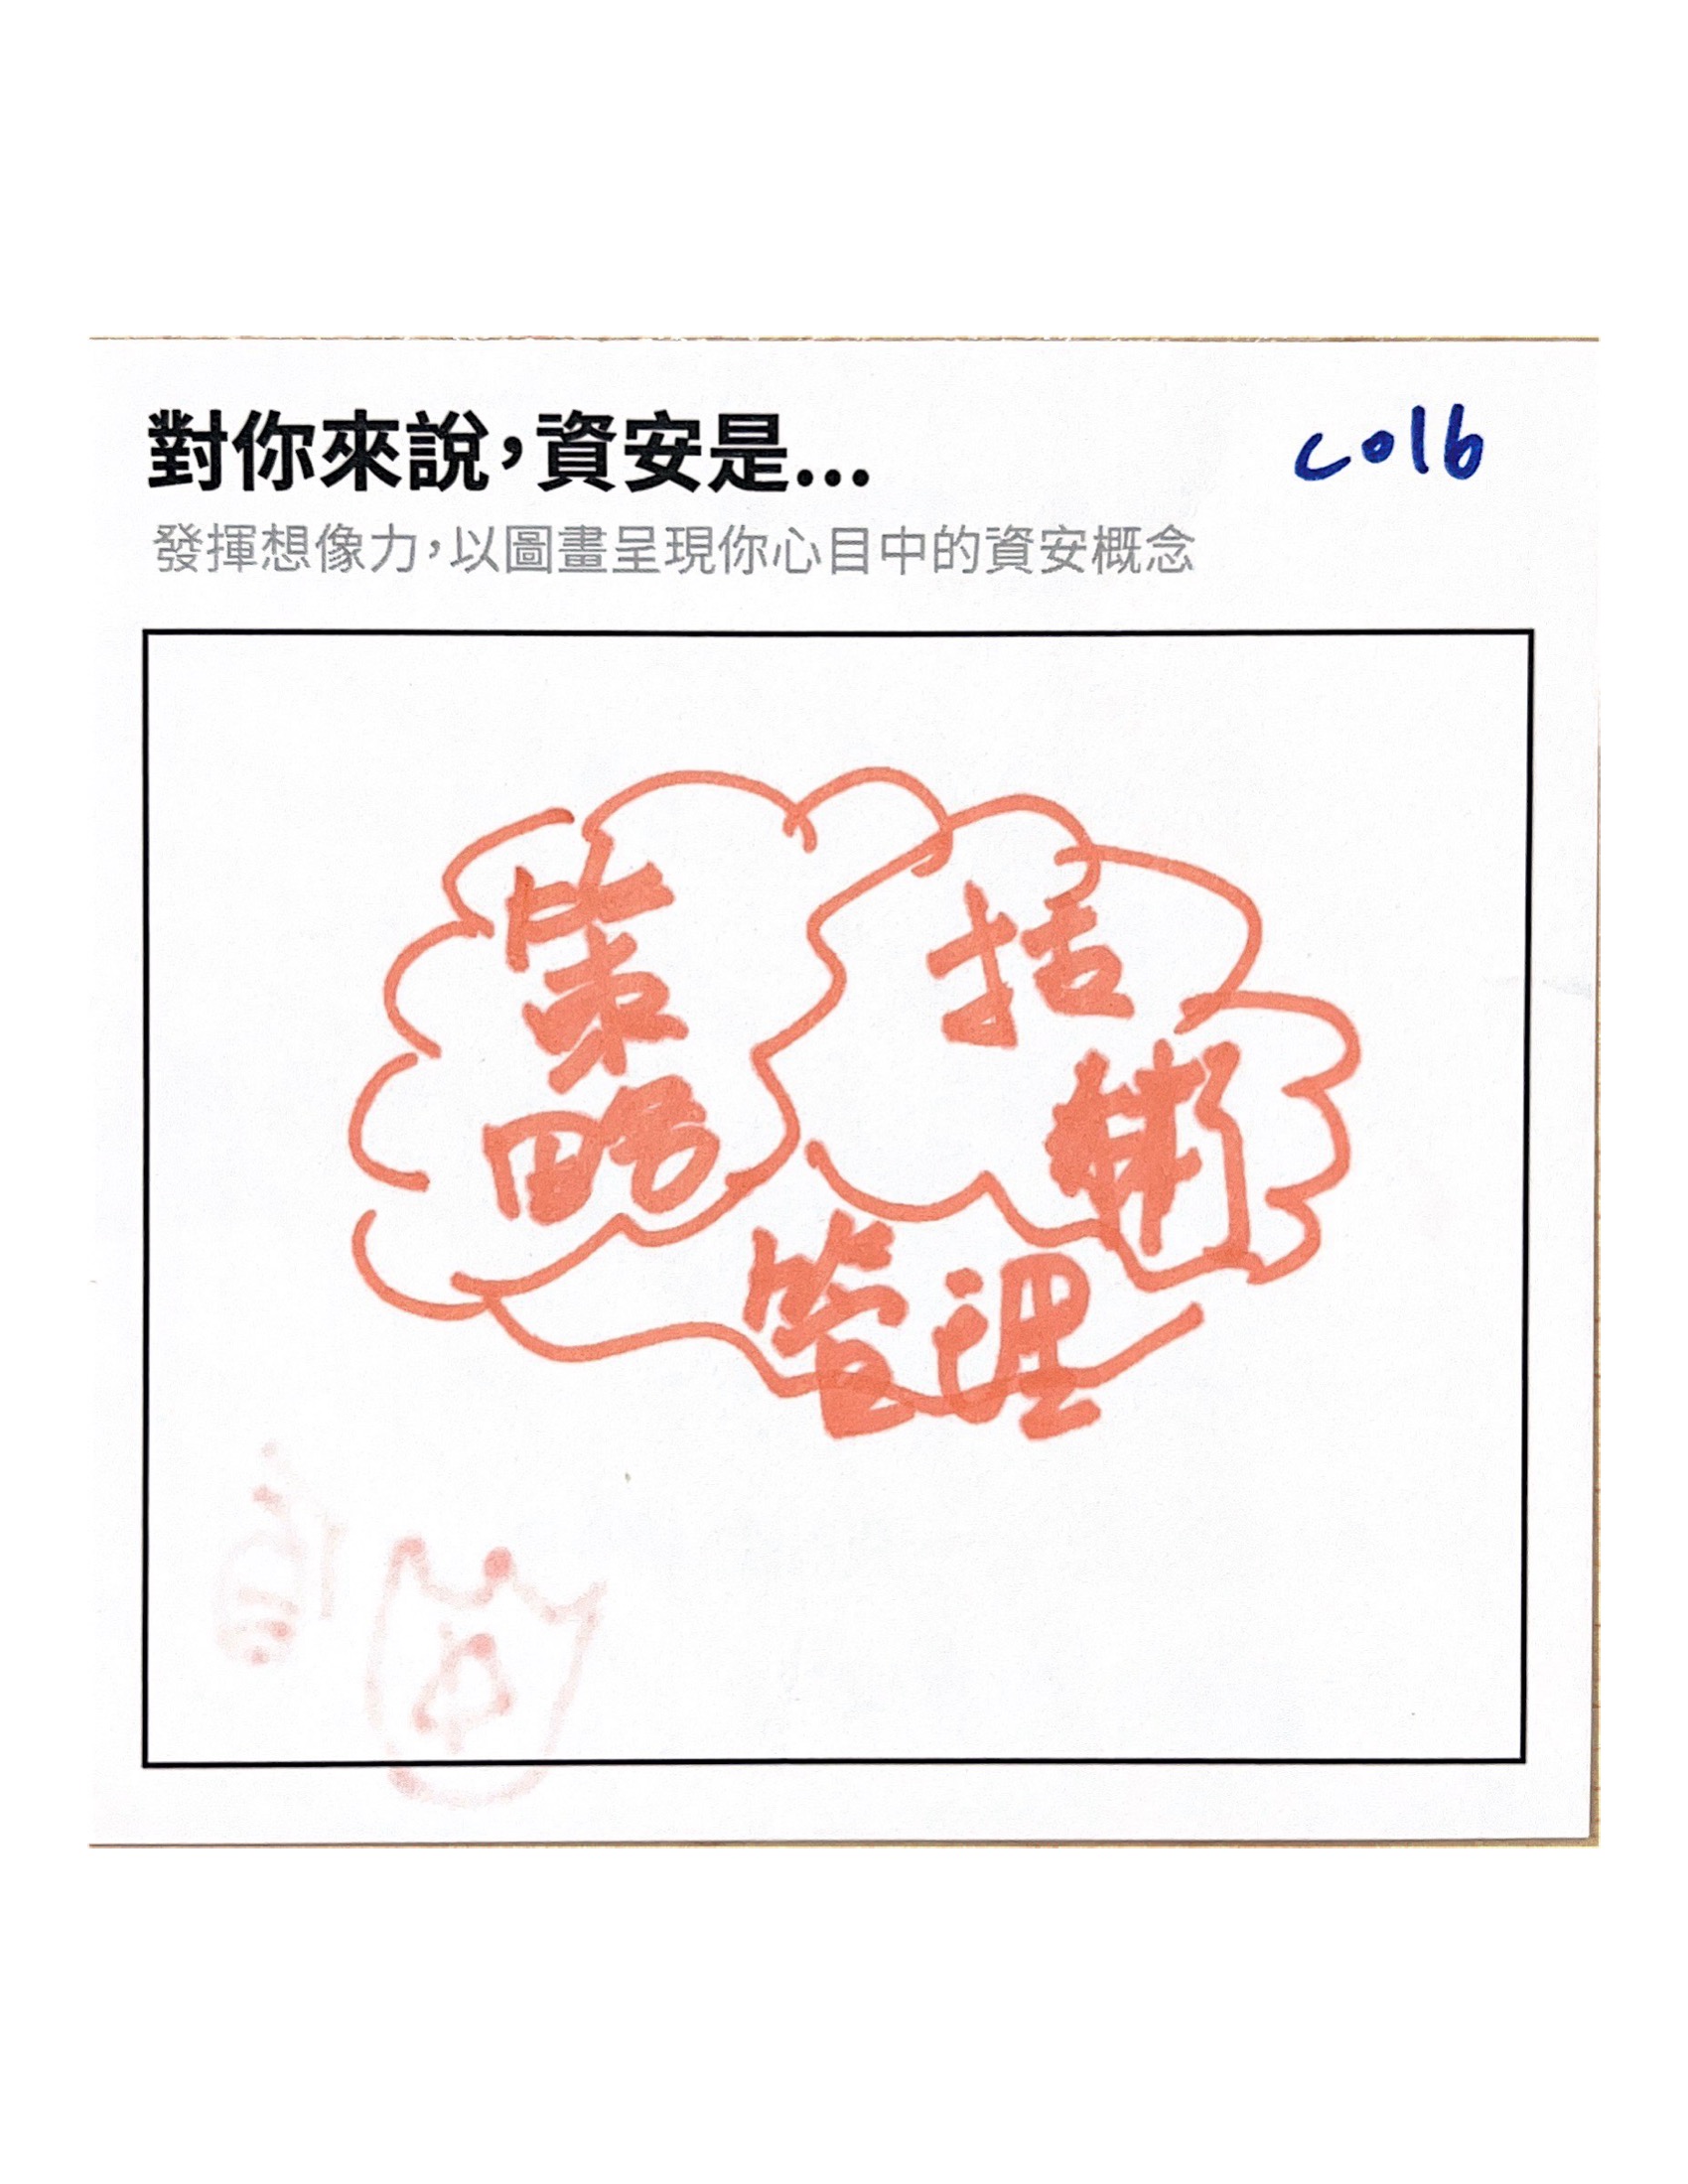 對你來說，資安是...
c016
發揮想像力，以圖畫呈現你心目中的資安概念
策略
管理